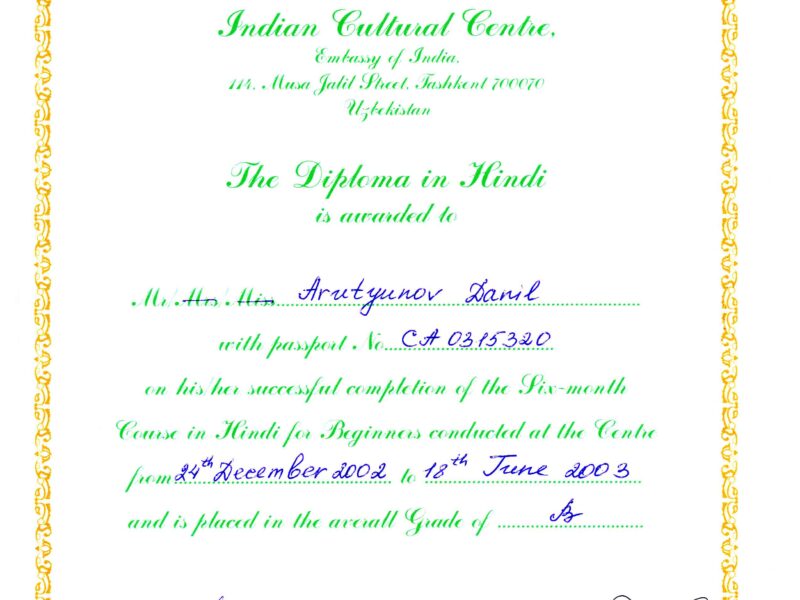 Indian Cultural Centre,
Embassy of India,
114, Musa Jalil Street, Tashkent 700070
Uzbekistan
The Diploma in Hindi
is awarded to
Mr/Mrs/Miss Arutyunov Danil
with passport No. CA 0315320
on his/her successful completion of the Six-month
Course in Hindi for Beginners conducted at the Centre
from 24th December 2002 to 18th June 2003
and is placed in the overall Grade of B